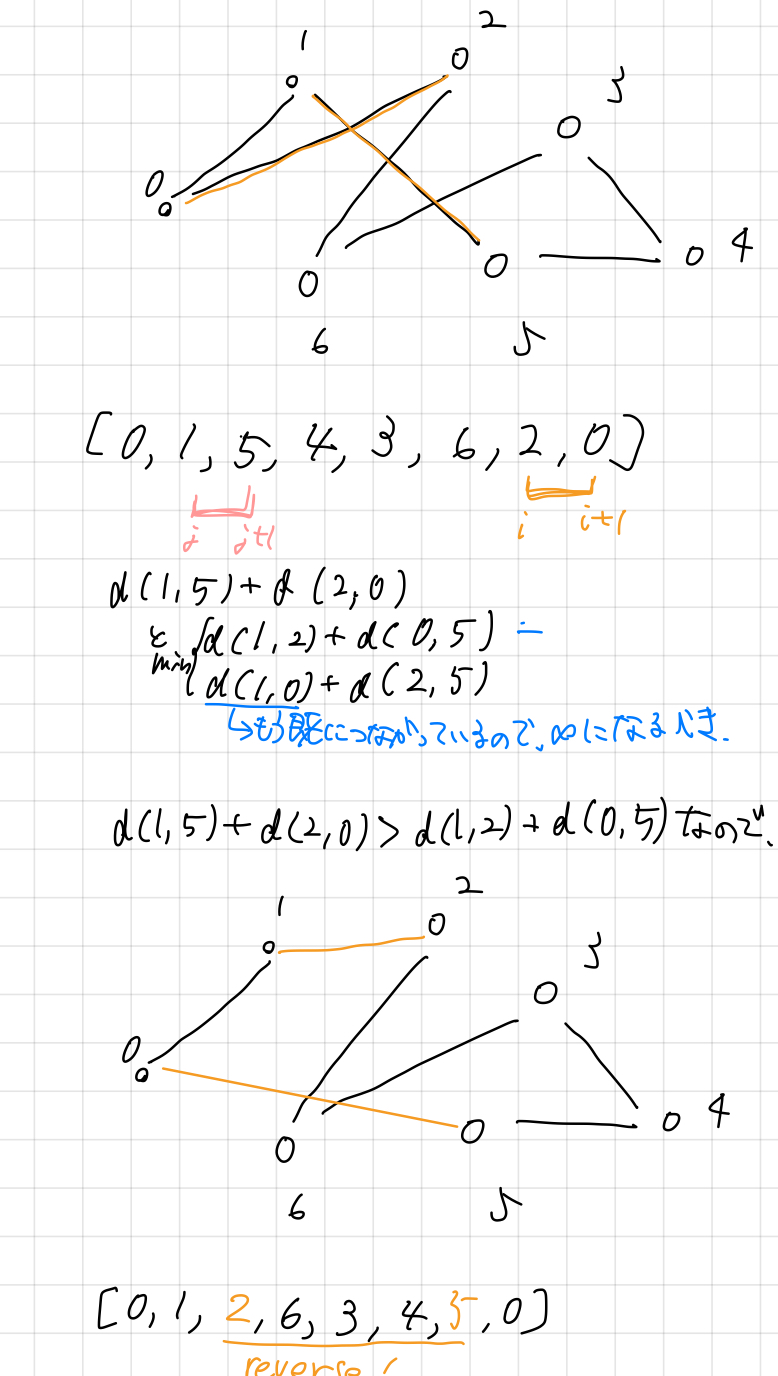 1
2
3
0
4
6
5
[0, 1, 5, 4, 3, 6, 2, 0]
j j+1 i i+1
d(1,5)+d(2,0)
と min { d(1,2)+d(0,5) =
d(1,0)+d(2,5)
↳もう既につながっているので、∞になるべき.
d(1,5)+d(2,0)>d(1,2)+d(0,5)なので、
1
2
3
0
4
6
5
[0, 1, 2, 6, 3, 4, 5, 0]
reverse!